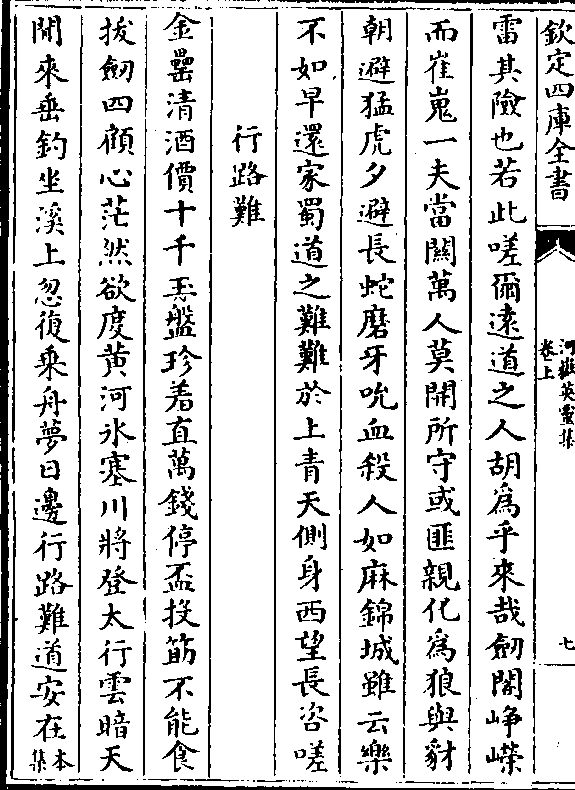 欽定四庫全書
河嶽英靈集
卷上
七
雷其險也若此嗟爾逺道之人胡為乎來哉劒閣崢嶸
而崔嵬一夫當關萬人莫開所守或匪親化為狼與豺
朝避猛虎夕避長蛇磨牙吮血殺人如麻錦城雖云樂
不如早還家蜀道之難難於上青天側身西望長咨嗟
行路難
金罍清酒價十千玉盤珍羞直萬錢停盃投筯不能食
拔劒四顧心茫然欲度黄河氷塞川將登太行雲暗天
閒來垂釣坐溪上忽復乘舟夢日邊行路難道安在本
集